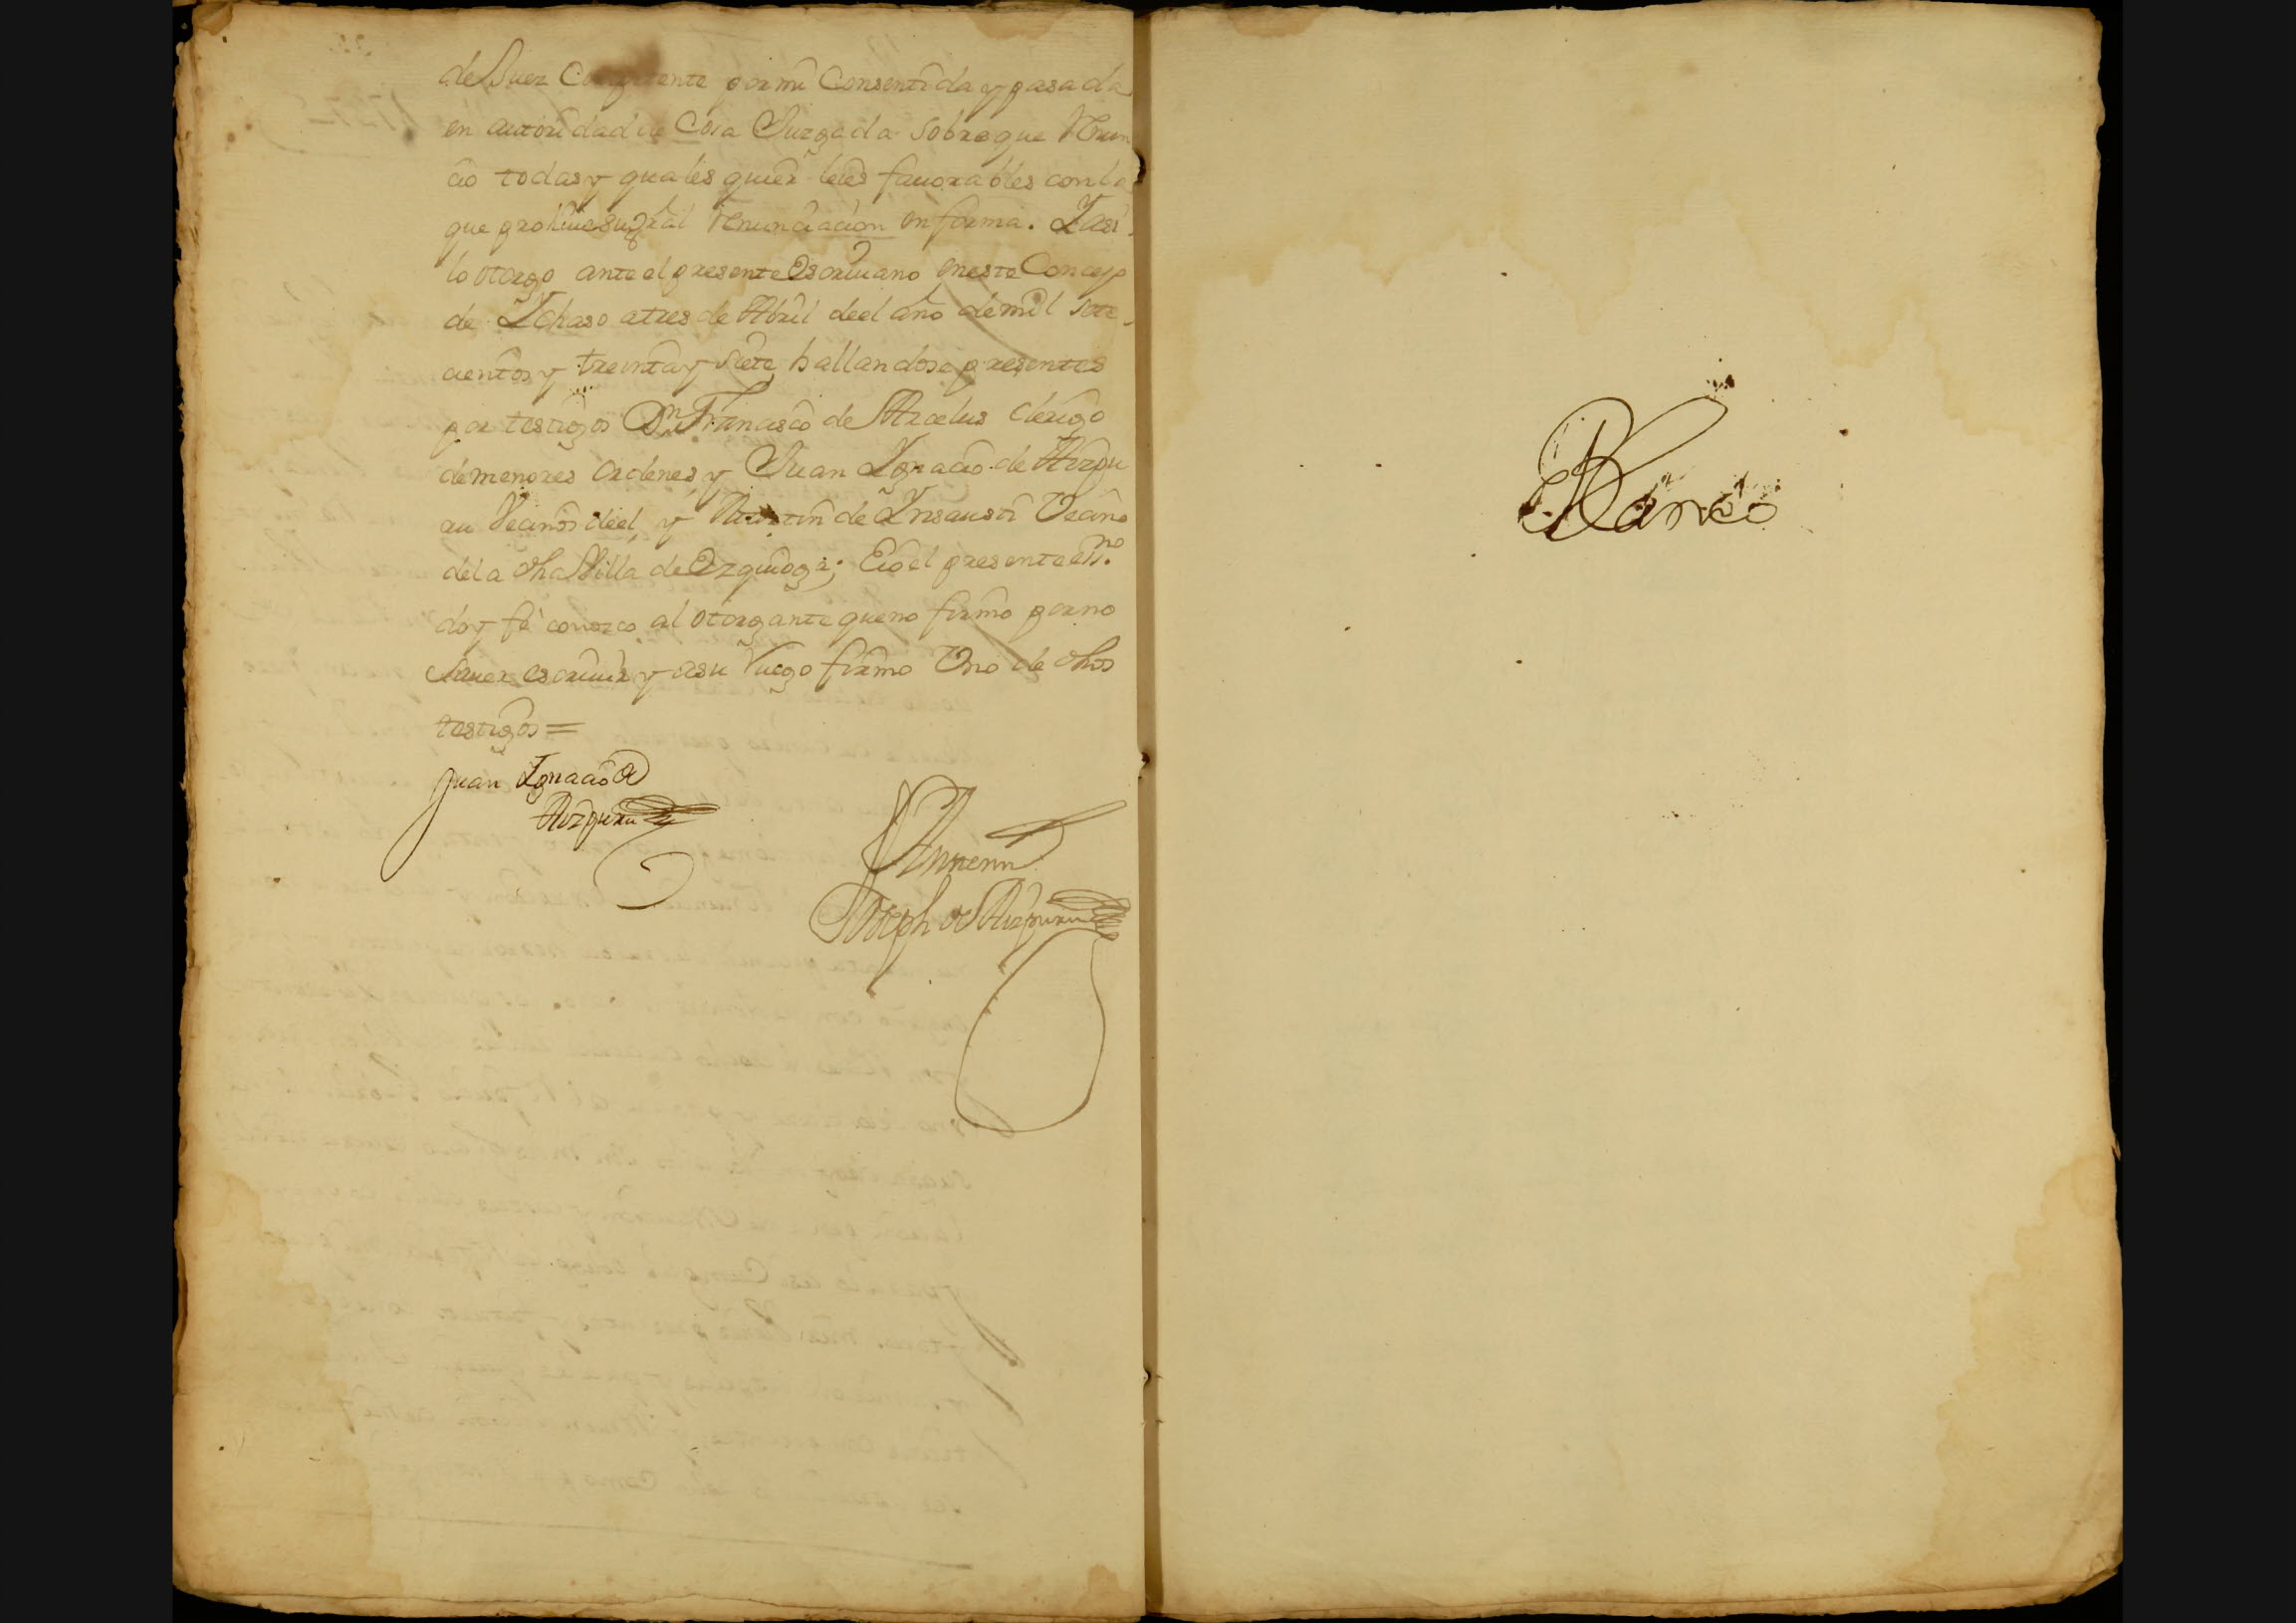 de Juez Competente por mi Consentida y pasada
en autoridad de Cosa Juzgada sobre que Renun
cio todas y quales quier leies favorables con la
que prohive su gral renunciacion en forma. Y asi
lo otorgo ante el presente Escrivano en este Concejo
de Ychaso a tres de Abril de el año de mil sete
cientos y treinta y siete, hallandose presentes
por testigos Dn. Francisco de Arcelus Clerigo
de menores ordenes, y Juan Ygnacio de Aizpu
ru Vecinos de el, y Agustin de Ynsausti Vecino
de la dha Villa de Ezquioga; E io el presente essno.
doy fè conozco al otorgante que no firmo por no
saver escrivir y a su ruego firmo Uno de dhos
testigos =
Juan Ygnacio de
Aizpuru
Antemi
Joseph de Aizpuru
Blanco